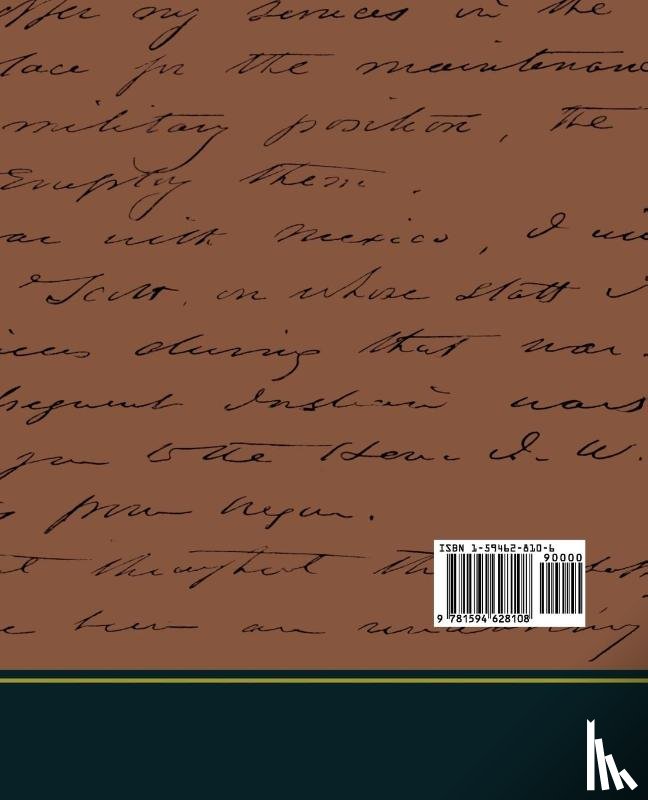 offer my services in the
place for the maintenance
military position, the
Employ them.
war with Mexico, I
Scott, on whose staff I
during that war.
Indian wars
you to the Hon. I. W.
from
throughout
been an
ISBN 1-59462-810-6
90000
9 781594 628108